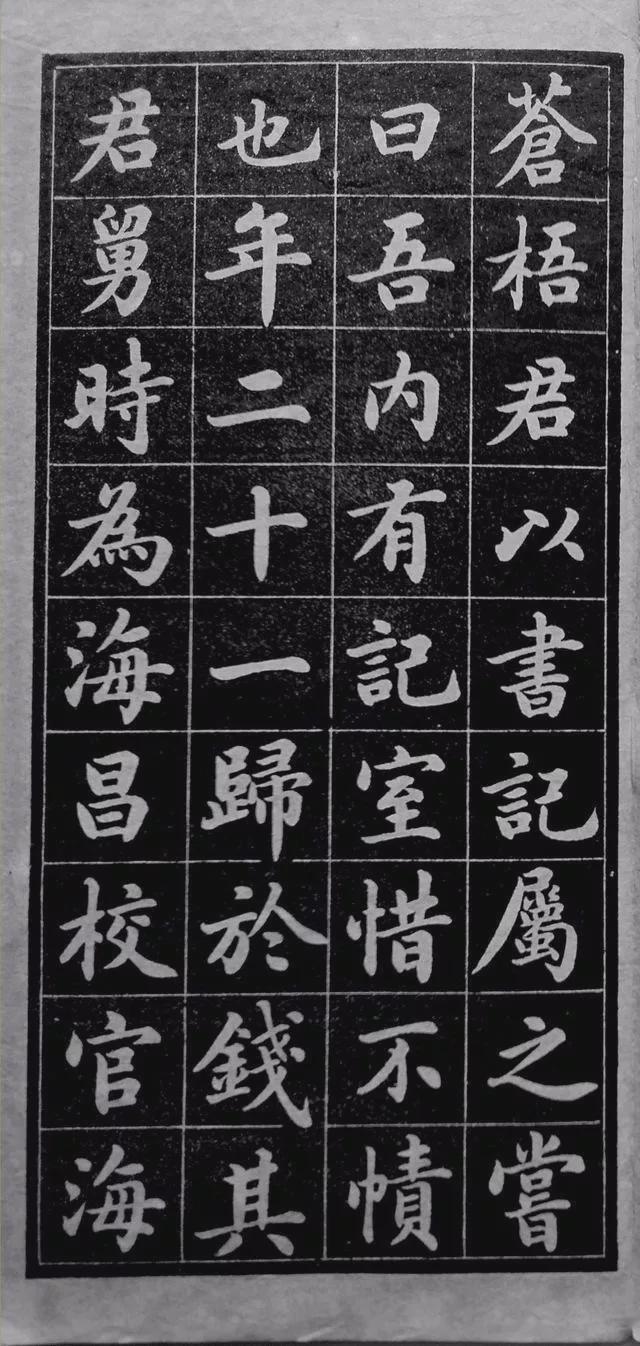 蒼梧君以書記屬之嘗
曰吾內有記室惜不幘
也年二十一歸於錢其
君舅時為海昌校官海